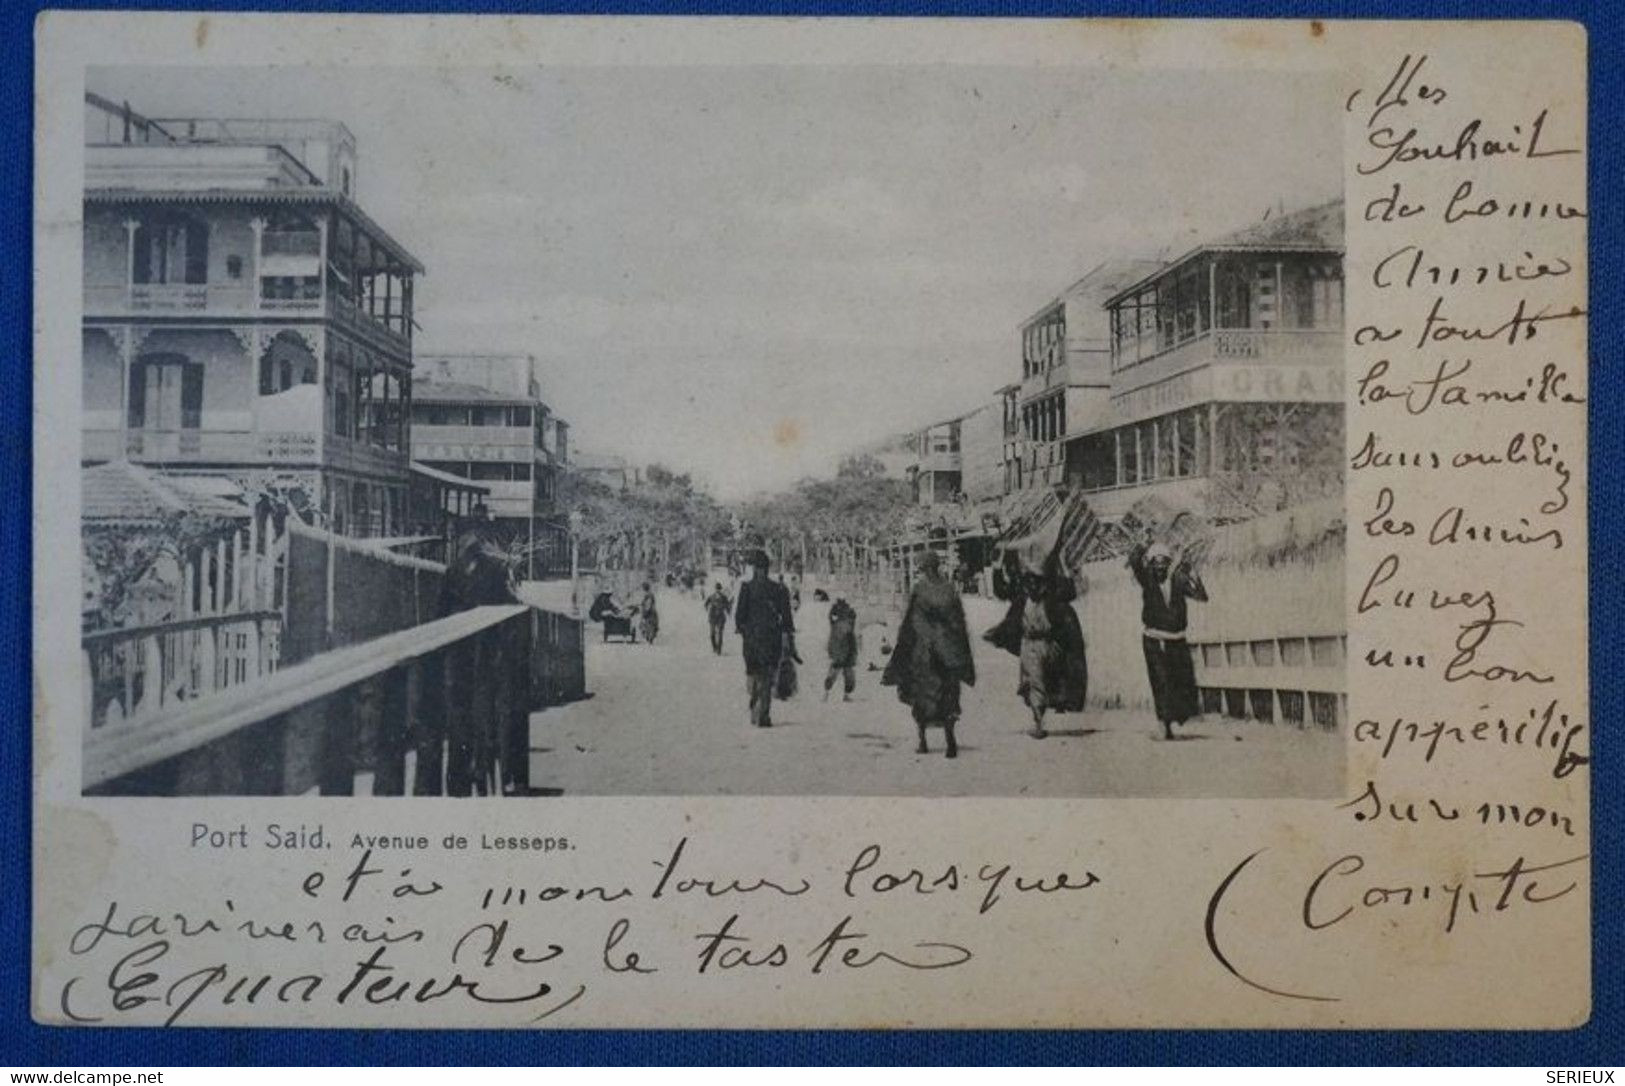 Mes
Souhait
de bonne
Année
a toute
la famille
sans oublier
les Amis
buvez
un bon
appéritif
sur mon
Compte
GRAN
Port Said. Avenue de Lesseps.
et à mon tour lorsque
jariverais de le taster
(Equateur)
delcampe.net
SERIEUX